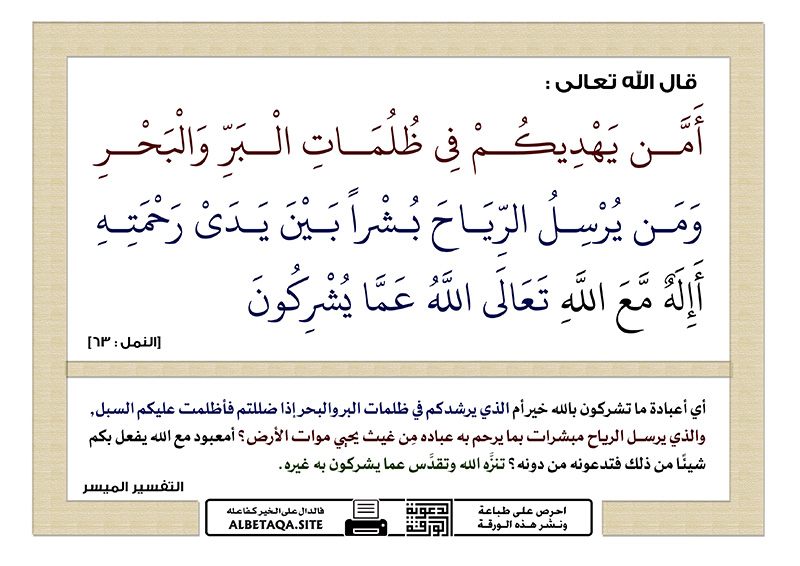 قال الله تعالى :
أَمَّـن يَهْدِيكُـمْ فِى ظُلُمَـاتِ الْـبَرِّ وَالْبَحْـرِ
وَمَـن يُرْسِـلُ الرِّيَـاحَ بُـشْراً بَـيْنَ يَـدَىْ رَحْمَتِـهِ
أَإِلَهٌ مَّعَ اللَّهِ تَعَالَى اللَّهُ عَمَّا يُشْرِكُونَ
[النمل : ٦٣]
أي أعبادة ما تشركون بالله خير أم الذي يرشدكم في ظلمات البر والبحر إذا ضللتم فأظلمت عليكم السبل,
والذي يرسـل الرياح مبشرات بما يرحم به عباده مِن غيث يحيي موات الأرض؟ أمعبود مع الله يفعل بكم
شيئًا من ذلك فتدعونه من دونه؟ تنزَّه الله وتقدَّس عما يشركون به غيره.
التفسير الميسر
احرص على طباعة
ونشر هذه الورقة
الدعوية
الورقة
فالدال على الخير كفاعله
ALBETAQA.SITE